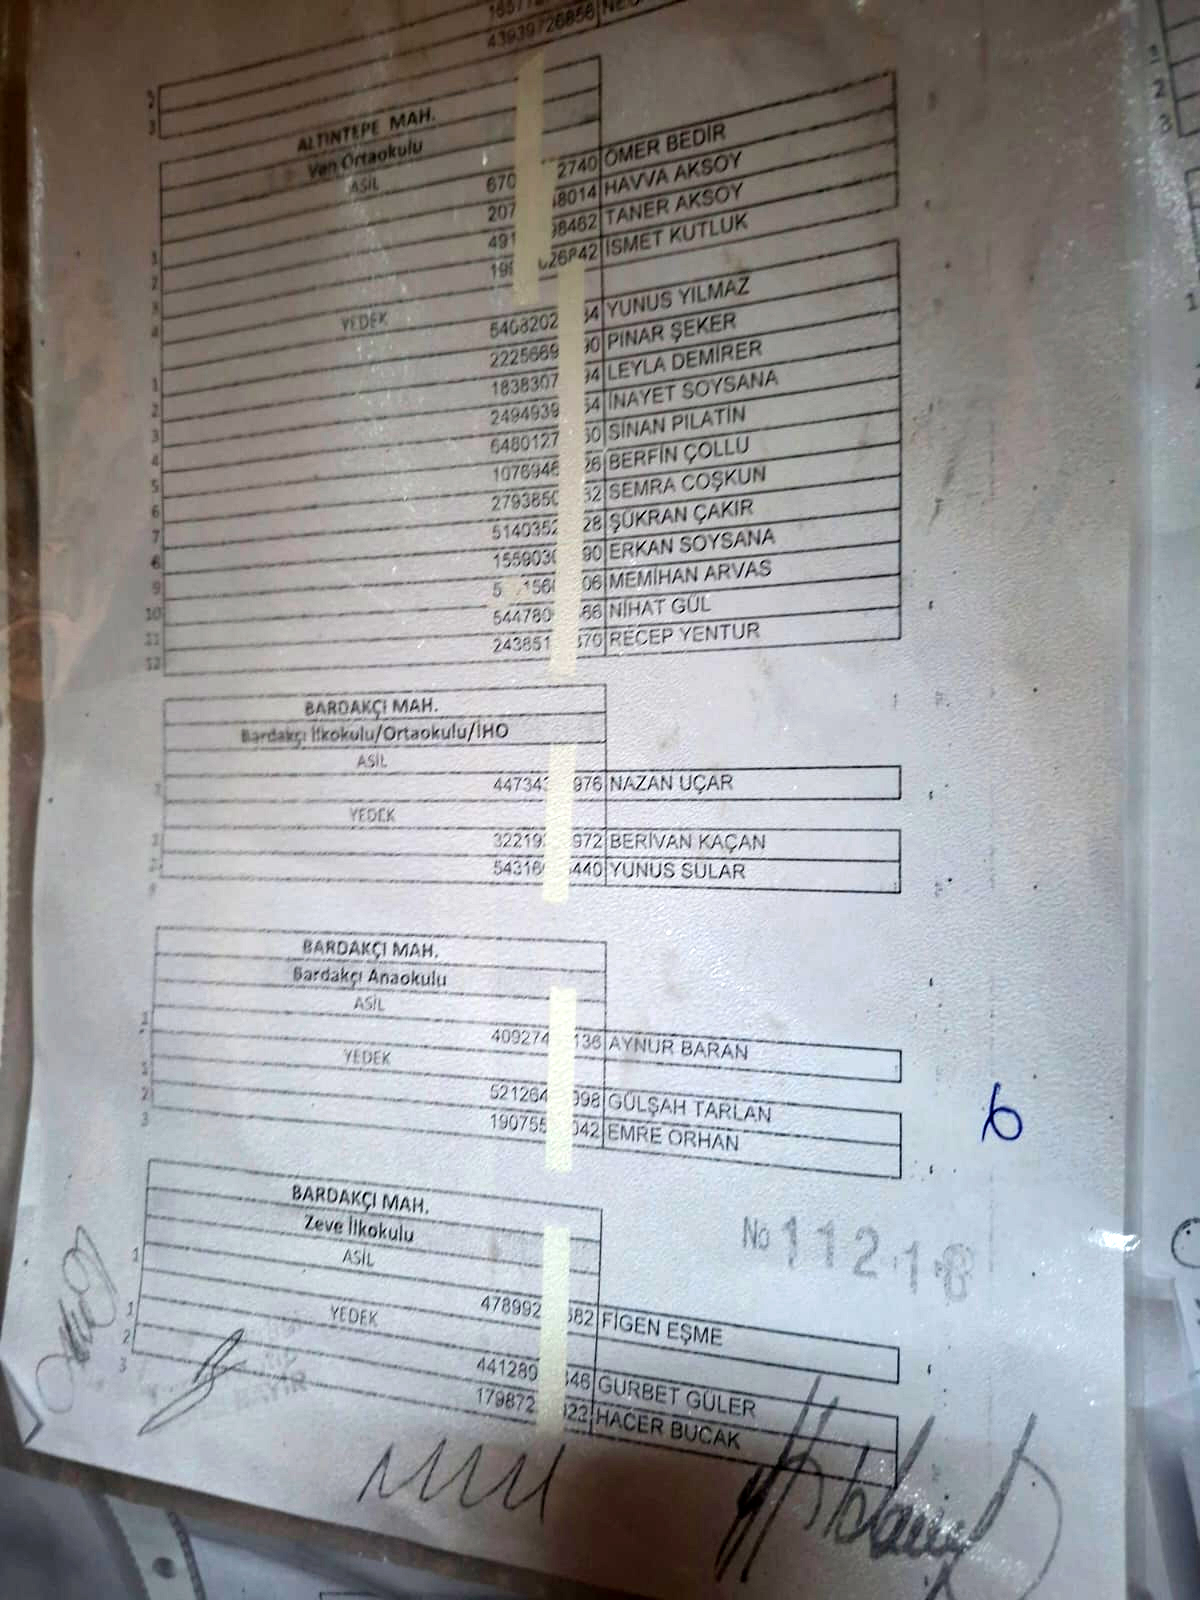 43939726856
ALTINTEPE MAH.
Van Ortaokulu
ASİL
670 2740 ÖMER BEDİR
207 48014 HAVVA AKSOY
491 98462 TANER AKSOY
199 026842 İSMET KUTLUK
YEDEK
5408202 84 YUNUS YILMAZ
2225669 90 PINAR ŞEKER
1838307 94 LEYLA DEMİRER
2494939 54 İNAYET SOYSANA
6480127 50 SİNAN PİLATİN
1076946 26 BERFİN ÇOLLU
2793850 32 SEMRA COŞKUN
5140352 28 ŞÜKRAN ÇAKIR
1559030 90 ERKAN SOYSANA
5 156 06 MEMİHAN ARVAS
544780 66 NİHAT GÜL
243851 370 RECEP YENTUR
BARDAKÇI MAH.
Bardakçı İlkokulu/Ortaokulu/İHO
ASİL
44734 976 NAZAN UÇAR
YEDEK
32219 972 BERİVAN KAÇAN
54316 440 YUNUS SULAR
BARDAKÇI MAH.
Bardakçı Anaokulu
ASİL
409274 136 AYNUR BARAN
YEDEK
52126 998 GÜLŞAH TARLAN
19075 042 EMRE ORHAN
6
BARDAKÇI MAH.
Zeve İlkokulu
ASİL
No 11218
478992 582 FİGEN EŞME
YEDEK
441289 546 GURBET GÜLER
179872 422 HACER BUCAK